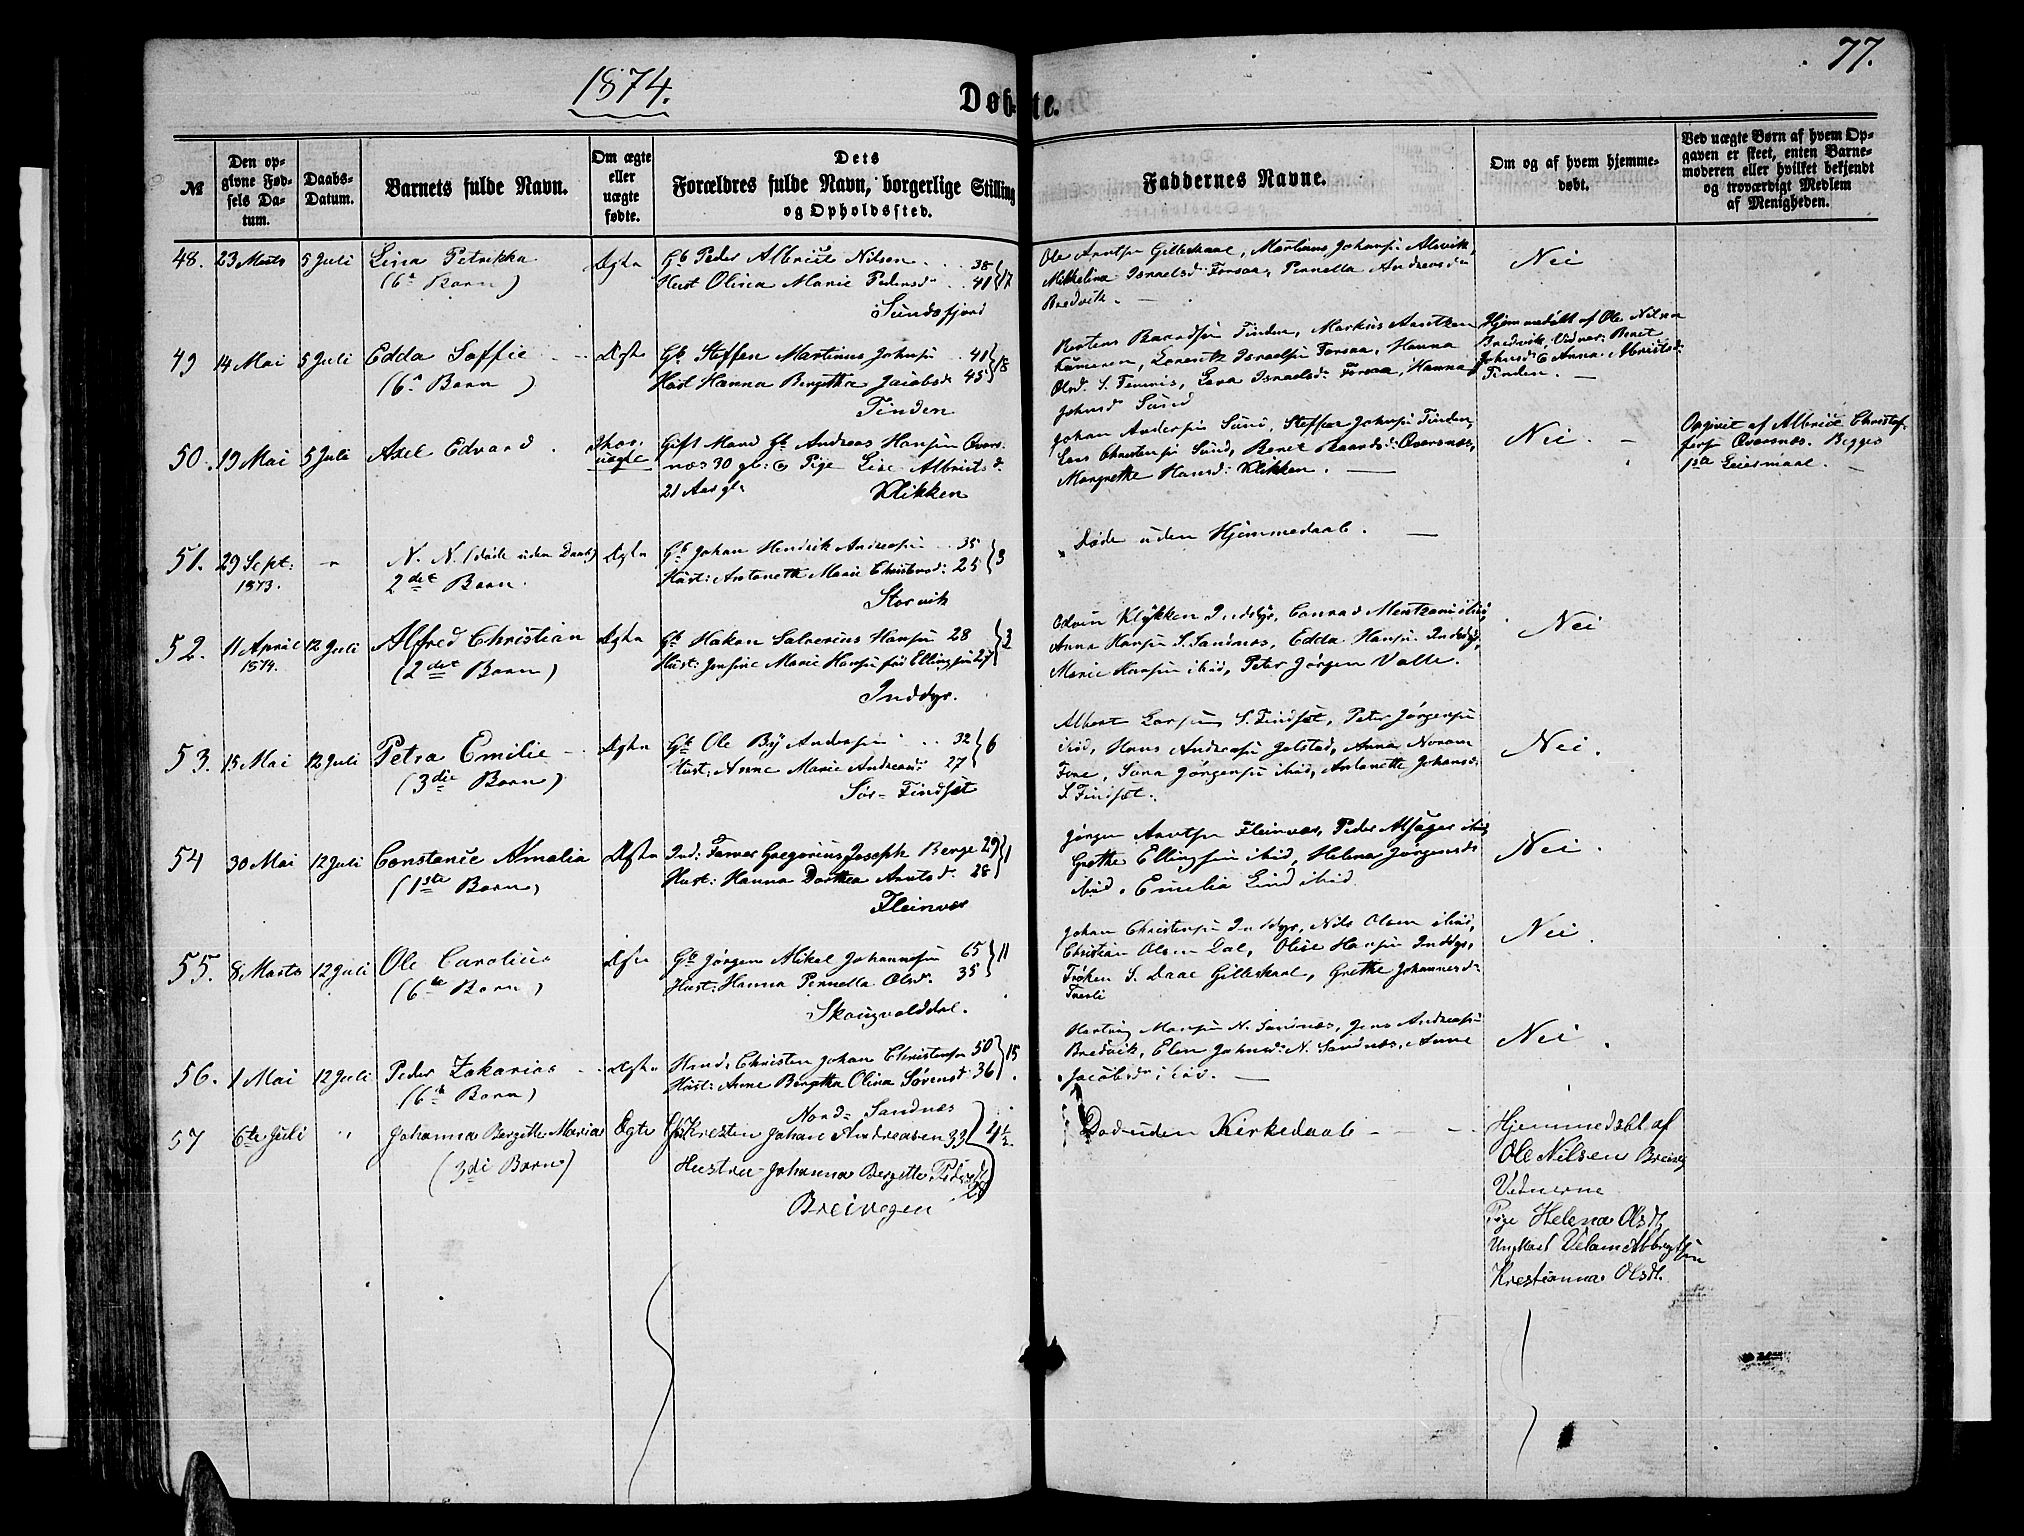 77.
1874.
Døbte.
№
Den op-
givne Fød-
sels Da-
tum.
Daabs-
Datum.
Barnets fulde Navn.
Om ægte
eller
uægte
fødte.
Dets
Forældres fulde Navn, borgerlige Stilling
og Opholdssted.
Faddernes Navne.
Om og af hvem hjemme-
døbt.
Ved uægte Børn af hvem Op-
gaven er skeet, enten Barne-
moderen eller hvilket bekjendt
og troværdigt Medlem
af Menigheden.
48. 23 Marts 5 Juli Lina Petrikka
(6te Barn)
Ægte
Gb Peder Albrict Nilsen 38
Hust Olina Marie Pedersd. 41 } 17
Sundsfjord
Ole Arntsen Gilleskaal, Martinus Johansen Alsvik,
Mikkelina Israelsd: Forsaa, Pernella Andreasd.
Bredvik.
Nei
49 14 Mai 5 Juli Edda Soffie
(6te Barn)
Ægte
Gb Steffen Martinus Johnsen 41
Hust Hanna Bergitha Jacobsd. 45 } 18
Tinden
Baardsen Tinden, Markus Arntzen
Lorentz Israelsen Forsaa, Hanna
Olsd. S. Lava Israelsd: Forsaa, Hanna
Johnsd Sund
Hjemmedøbt af Ole Nilsen
Bredvik, Vidner: Beret
Johnsd. & Anna
Tinden.
50. 19 Mai 5 Juli Axel Edvard
uægte
Gift Mand Gb Andreas Hansen Øvers-
næs 30 gl: & Pige Lise Albrictsd.
21 Aar gl.
Klikken
Johan Andersen Sund, Steffen Johnsen Tinden,
Lars Christensen Sund, Beret Baardsd: Øversnæs,
Margrethe Hansd: Klikken.
Nei.
Opgivet af Albrict Christof-
fersen Øversnæs. Begges
1ste Leiermaal.
51. 29 Sept:
1873.
N. N. (døde uden Daab)
2det Barn.
Ægte
Gb Johan Hendrik Andreasen 35
Hust: Antonette Marie Christensd: 25 } 3
Storvik
Døde uden Hjemmedaab.
52. 11 April
1874.
12 Juli Alfred Christian
(2det Barn)
Ægte
Gb Hakon Salverius Hansen 28
Hust: Jensine Marie Hansen født Ellingsen 27 } 3
Inddyr.
Edvin Klykken Inddyr, Conrad Mentzoni ibid,
Anna Hansen S. Sandnæs, Edda Hansen Inddyr,
Marie Hansen ibid, Peter Jørgen Valle.
Nei
53. 15 Mai 12 Juli Petra Emilie
(3die Barn)
Ægte
Gb Ole By Andersen 32
Hust: Anne Marie Andreasd: 27 } 6
Sør-Findset
Albert Larsen S. Findset, Peter Jørgensen
ibid, Hans Andreasen Jelstad, Anna
Fore, Jørgensen ibid, Antonette Johansd.
S. Findset.
Nei.
54 30 Mai 12 Juli Constance Amalia
(1ste Barn)
Ægte
Ind: Farver Gregorius Joseph Berge 29
Hust: Hanna Dorthea Arntsd. 28 } 1
Fleinvær
Jørgen Arntsen Fleinvær, Peder Alsager ibid,
Grethe Ellingsen ibid, Helena Jørgensd.
ibid, Emelia Lind ibid.
Nei.
55. 8 Marts 12 Juli Ole Carolius
(6te Barn)
Ægte
Gb Jørgen Mikal Johannesen 65
Hust: Hanna Pernella Olsd. 35 } 11
Skougvolddal.
Johan Christensen Inddyr, Nils Olsen ibid,
Christian Olsen Dal, Olise Hansen Inddyr,
Frøken S. Daae Gilleskaal, Grethe Johannesd.
Nei.
56. 1 Mai 12 Juli Peder Zakarias
(6te Barn)
Ægte
Hmd: Christen Johan Christensen 50
Hust: Anne Bergitha Olina Sørensd 36 } 15
Nord-Sandnæs
Hartvig Hansen N. Sandnæs, Jens Andreasen
Bredvik, Elen Johnsd: N. Sandnæs, Anne
Jacobsd. ibid.
Nei.
57 6te Juli Johanna Bergitte Maria
(3di Barn)
Ægte
Kresten Johan Andreasen 33 } 4½
Hustru Johanna Bergitte Pedersd
Breivegen
Død uden Kirkedaab
Hjemmedøbt af
Ole Nilsen Breiveg
Vednerne
Pige Helena Olsdt,
Ungkarl Velam Albregtsen
Krestianna Olsdt.